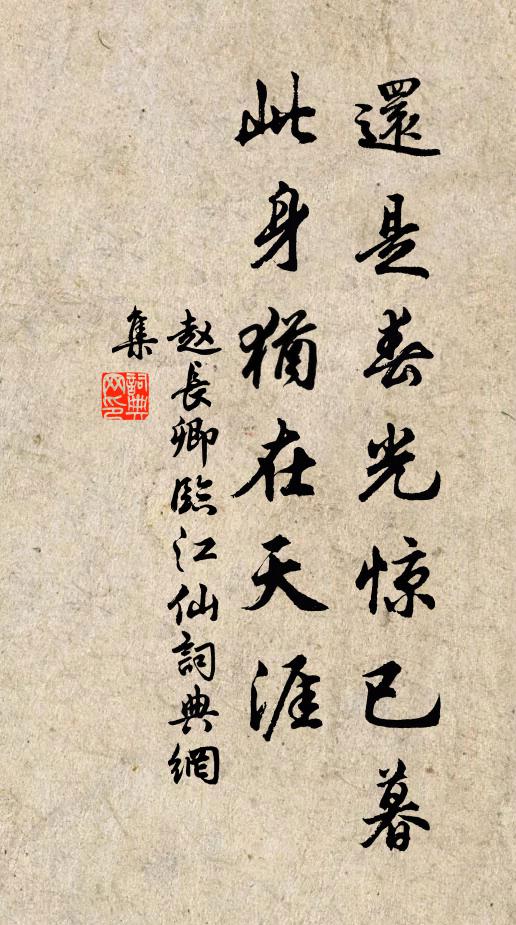 還是春光惊已暮
此身猶在天涯
赵長卿臨江仙詞典網
集
詞典
网印